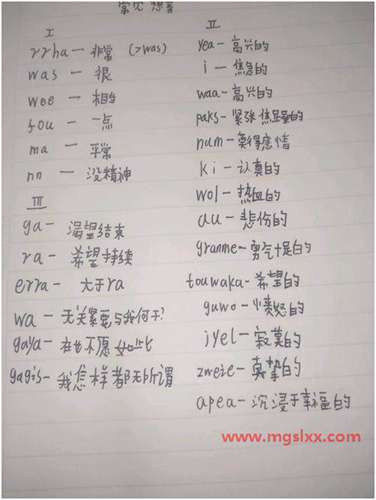 常见想音
I
rrha—非常 (>was)
was — 很
wee — 相当
fou — 一点
ma — 平常
nn — 没精神
III
ga— 渴望结束
ra— 希望持续
erra— 大于ra
wa—无关紧要与我何干?
gaya—在也不愿如此
gagis—我怎样都无所谓
II
yea—高兴的
i—焦急的
waa—高兴的
paks—紧张焦虑的
num—莫得感情
ki—认真的
wol—热血的
au—悲伤的
granme—勇气十足的
touwaka—希望的
guwo—愤怒的
iyel—寂寞的
zweie—真挚的
apea—沉浸于幸福的
www.mgslxx.com